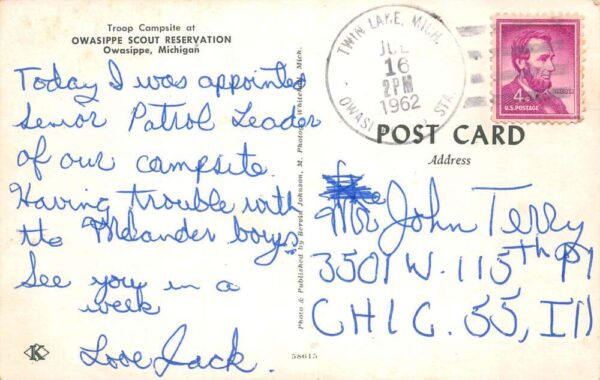 Troop Campsite at
OWASIPPE SCOUT RESERVATION
Owasippe, Michigan
Today I was appointed
Senior Patrol Leader
of our campsite.
Having trouble with
the Meander boys
See you in a
week
Love Jack.
K
Photo & Published by
Johnson,
58615
TWIN LAKE, MICH.
JUL
16
2PM
1962
STA.
4¢
U.S. POSTAGE
POST CARD
Address
Mr John Terry
3501 W. 115th Pl
CHIC. 55, Ill